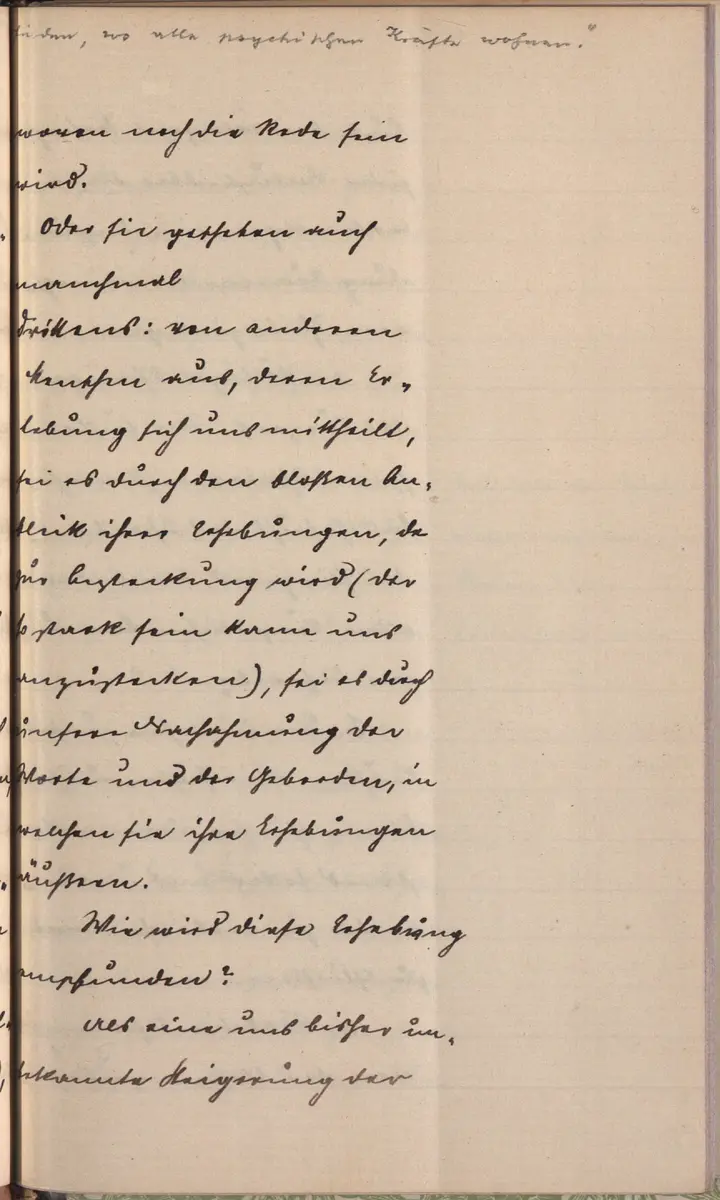 finden, wo alle psychischen Kräfte wohnen."
wovon noch die Rede sein
wird.
Oder sie geschehen auch
manchmal
drittens: von anderen
Menschen aus, deren Er-
hebung sich uns mittheilt,
sei es durch den bloßen An-
blick ihrer Erhebungen, de
zur wird (der
so stark sein kann uns
anzustecken), sei es durch
unsere Nachahmung der
Worte und der Geberden, in
welchen sie ihre Erhebungen
äußern.
Wie wird diese Erhebung
empfunden?
Als eine uns bisher un-
bekannte Steigerung der